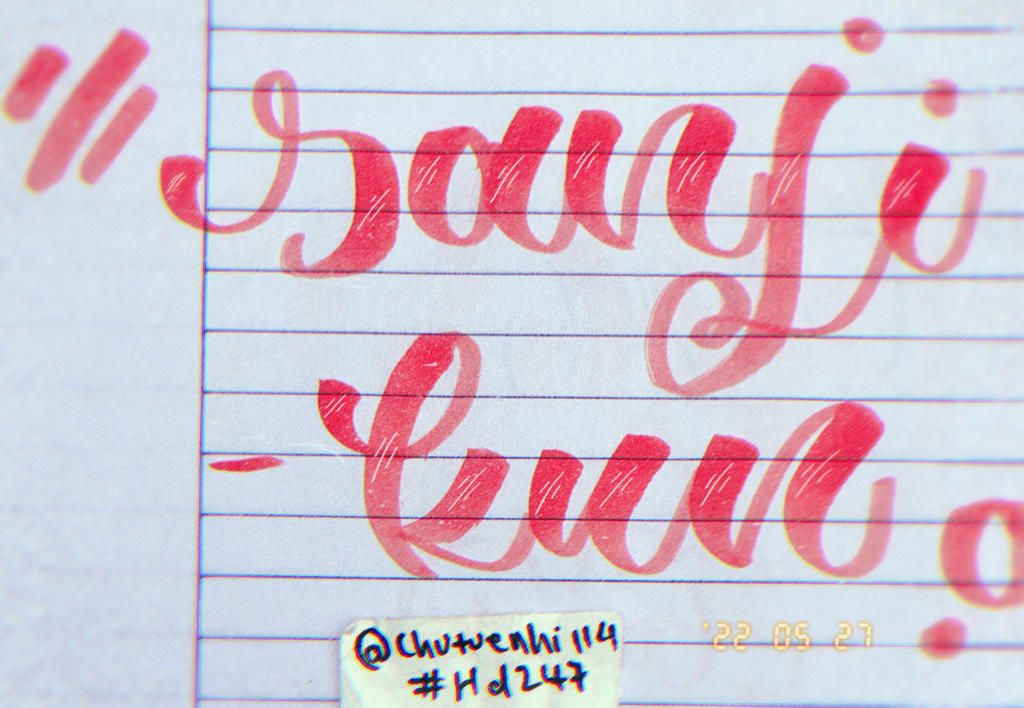 sanji
- kun
@chutuenhi 114
#Hd247
'22 05 27